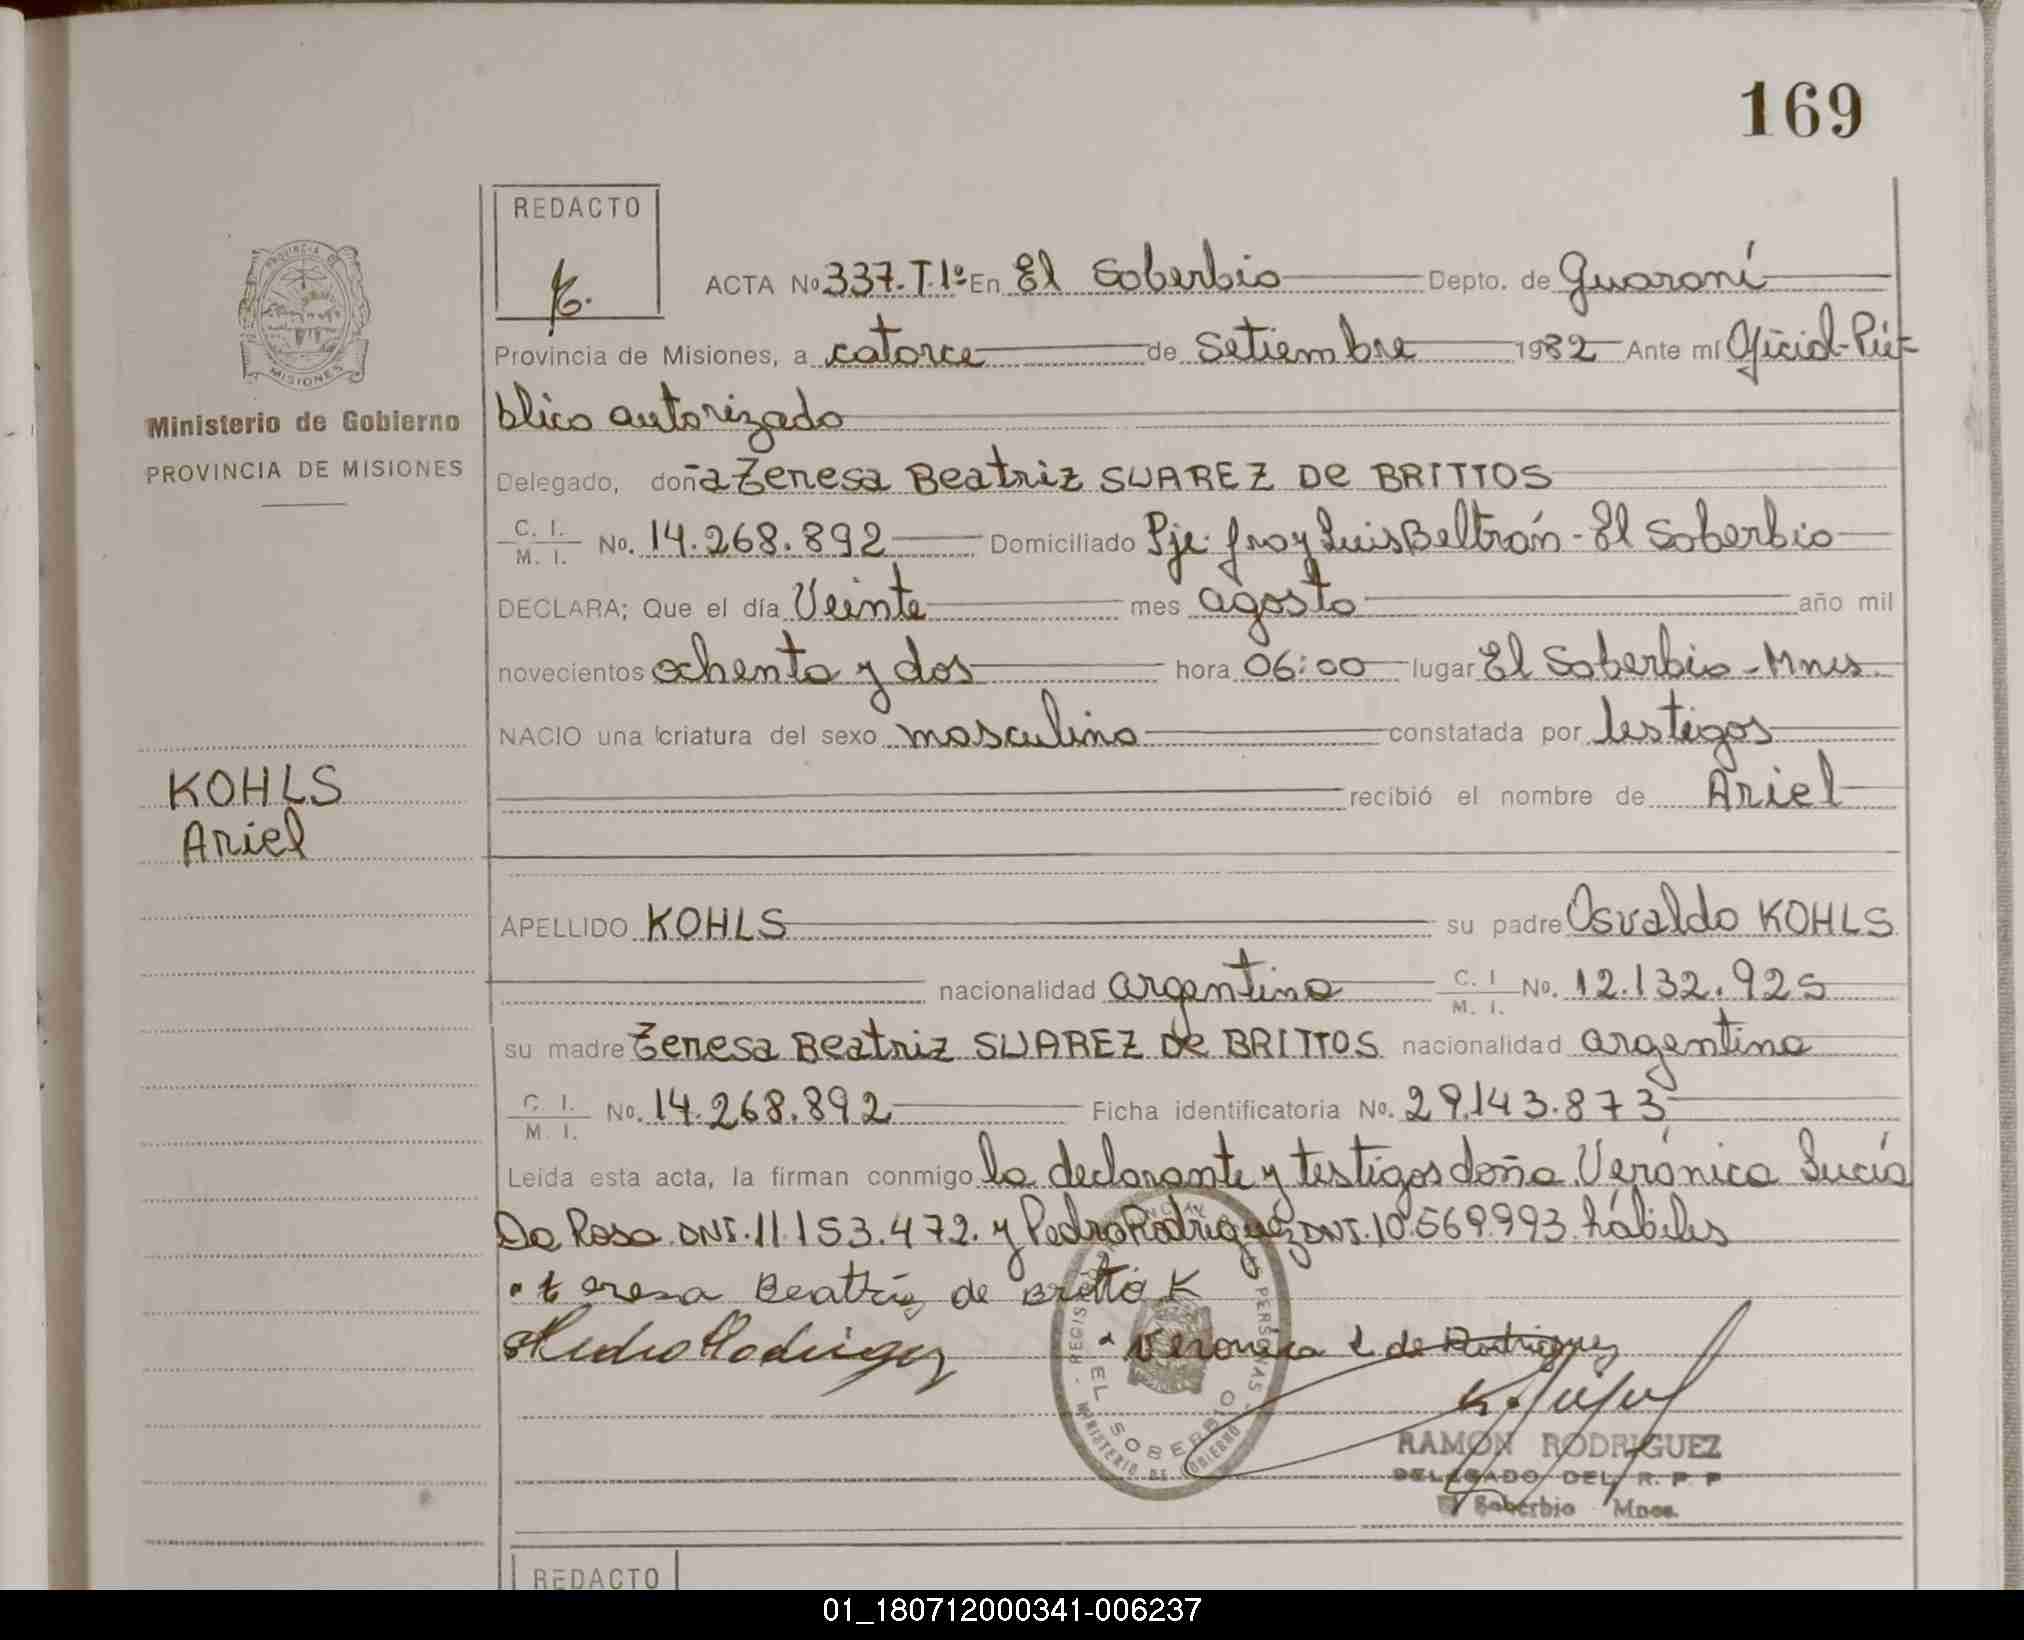 169
REDACTO
ACTA No 337.T.1º En El Soberbio Depto. de Guaraní
Provincia de Misiones, a catorce de Setiembre 1982 Ante mí Oficial Pú-
blico autorizado
Delegado, doña Teresa Beatriz SUAREZ De BRITTOS
C. I. M. I. No. 14.268.892 Domiciliado Pje. fray Luis Beltrán - El Soberbio
DECLARA; Que el día Veinte mes agosto año mil
novecientos ochenta y dos hora 06:00 lugar El Soberbio - Mnes.
NACIO una criatura del sexo masculino constatada por testigos
recibió el nombre de Ariel
APELLIDO KOHLS su padre Osvaldo KOHLS
nacionalidad argentina C. I M. I. No. 12.132.925
su madre Teresa Beatriz SUAREZ De BRITTOS nacionalidad argentina
C. I. M. I. No. 14.268.892 Ficha identificatoria No. 29.143.873
Leida esta acta, la firman conmigo la declarante y testigos doña Verónica Lucía
Da Rosa DNI. 11.153.472. y Pedro Rodriguez DNI. 10.569.993 hábiles
teresa Beatriz de Britto K
Pedro Rodriguez
Veronica L de Rodriguez
EL SOBERBIO
MINISTERIO DE GOBIERNO
RAMON RODRIGUEZ
DELEGADO DEL R. P. P
El Soberbio Mnes.
PROVINCIA DE
MISIONES
Ministerio de Gobierno
PROVINCIA DE MISIONES
KOHLS
Ariel
REDACTO
01_180712000341-006237